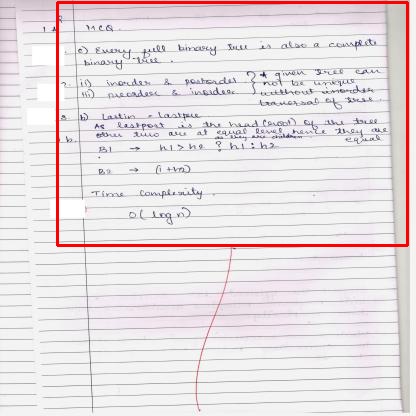 1 A MCQ.
1. c) Every full binary tree is also a complete
binary tree.
2. ii) inorder & postorder } * given tree can
iii) preorder & inorder not be unique
without inorder
traversal of tree.
3. b) lastin = lastpre
As lastpost is the head (root) of the tree
other two are at equal level hence they are
as they are children equal
b. B1 → h1 > h2 ? h1 : h2
B2 → (1 + h2)
Time complexity.
O(log n)